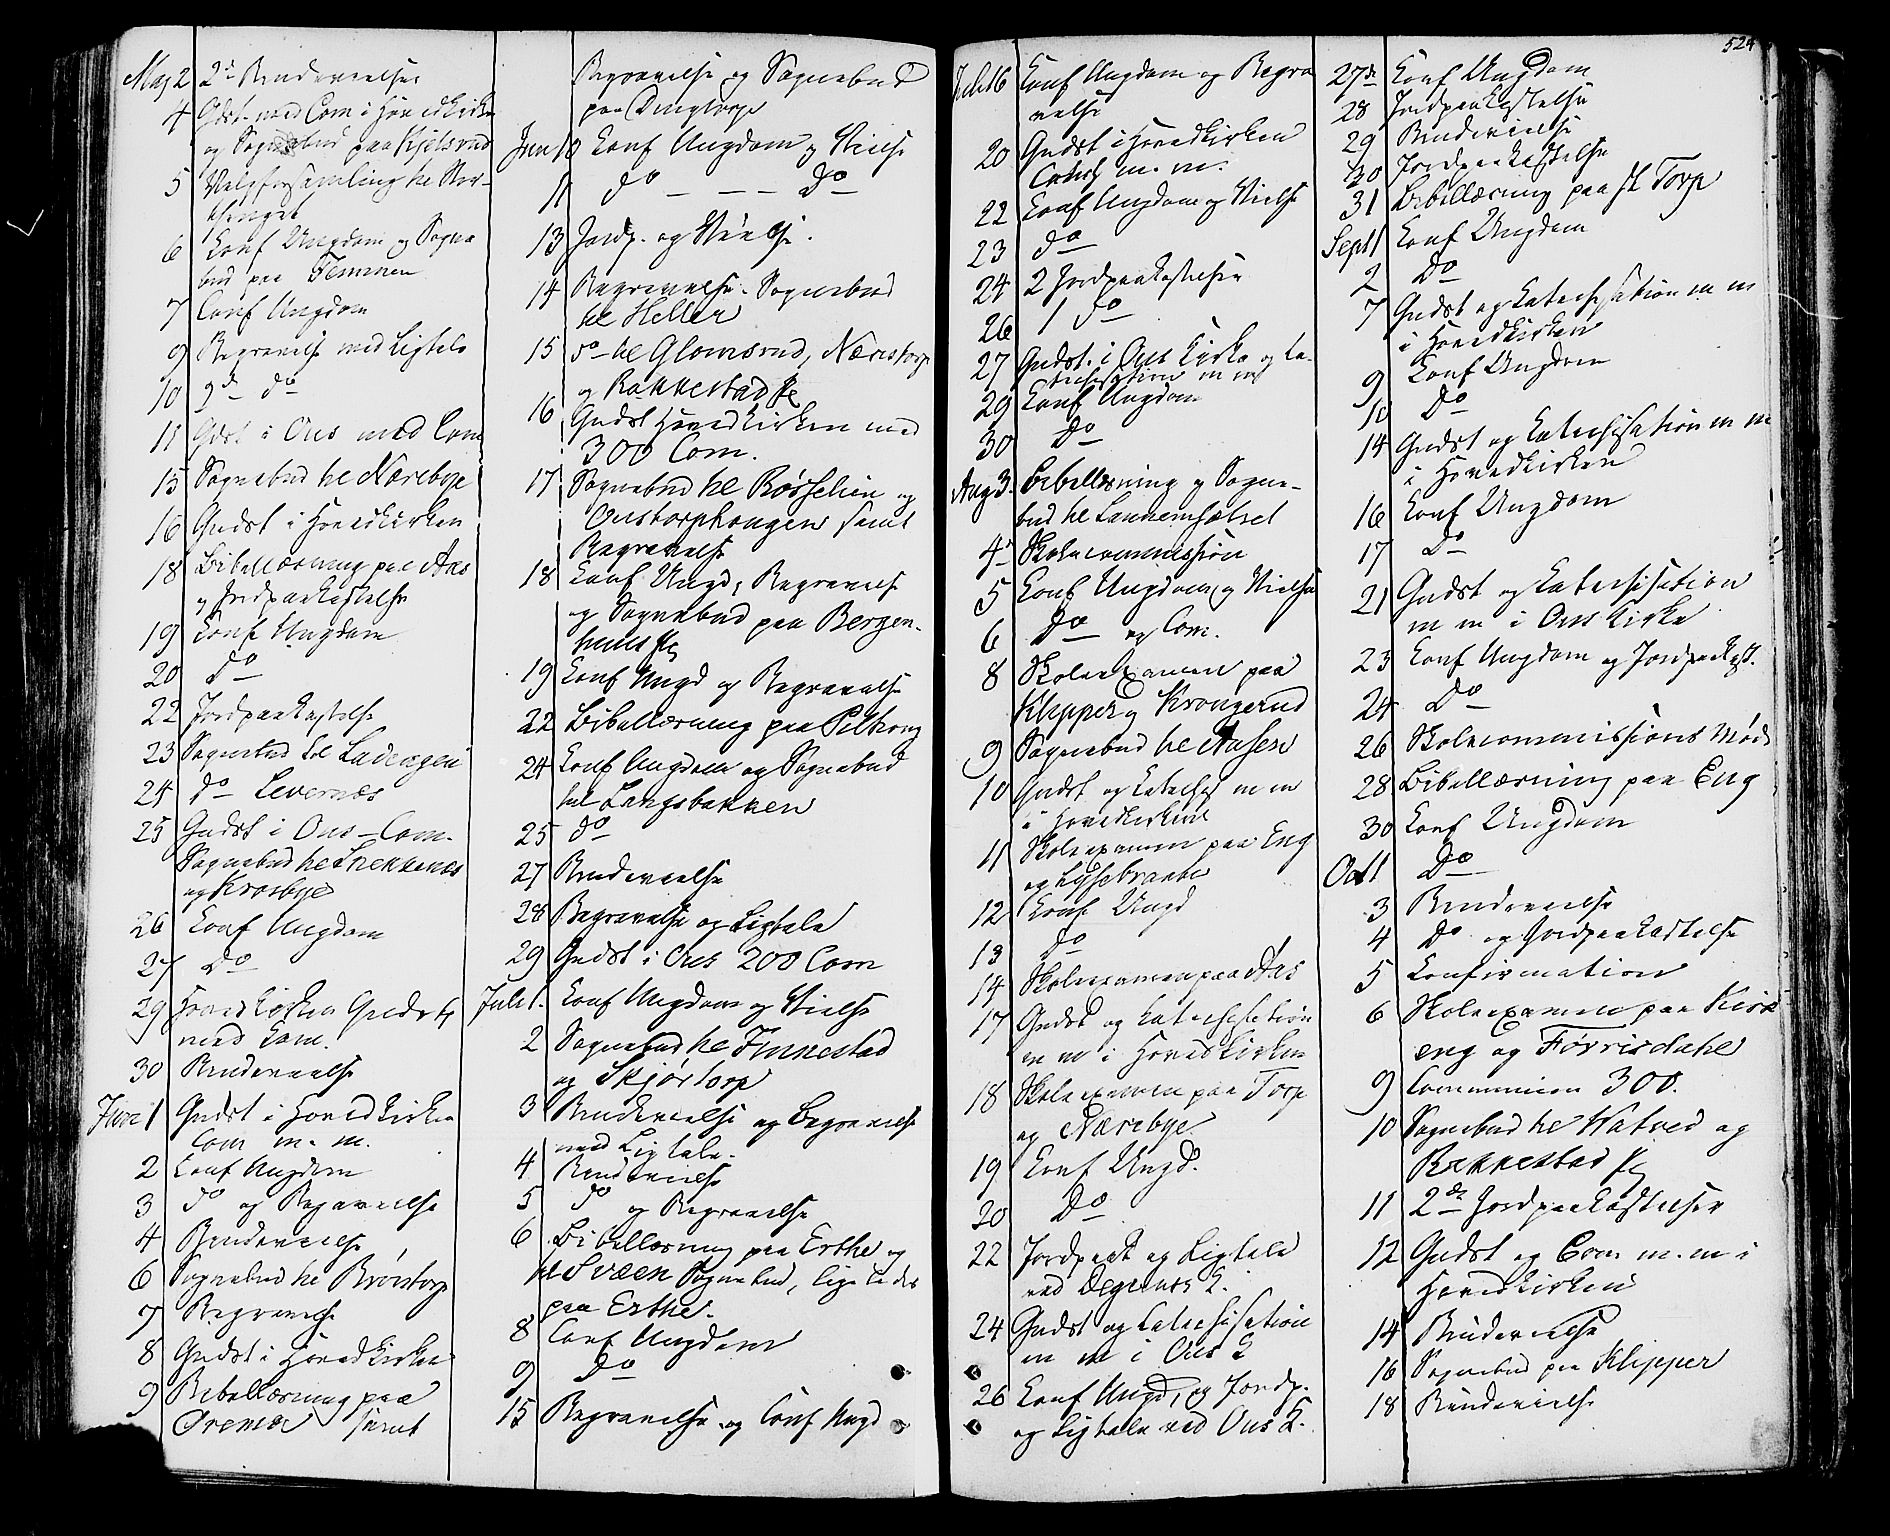 524
Maj 2 2de Brudevielser
4 Gdst. med Com i Hovedkirke
og Sognebud paa Kjelsrud
5 Valgforsamling hos
6 Conf Ungdom og Sogne
bud paa Temmen
7 Conf Ungdom
9 Begravelse med Ligtale
10 2de do
11 Gdst i Ous med Com
15 Sognebud til Nærebye
16 Gudst i Hovedkirken
18 Bibellæsning paa Aas
og Jordpaakastelse
19 Conf Ungdom
20 do
22 Jordpaakastelse
23 Sognebud til Ladengen
24 do Levernæs
25 Gudst i Ous - Com.
Sognebud til Snekkenes
og Krosbye
26 Conf Ungdom
27 Do
29 Hovedkirken Gudst
med Com.
30 Brudevielse
Juni 1 Gudst i Hovedkirken
Com m. m.
2 Conf Ungdom
3 do og Begravelse
4 Brudevielse
6 Sognebud til Brøstorp
7 Begravelse
8 Gudst i Hovedkirken
9 Bibellæsning paa
Oremoe samt
Begravelse og Sognebud
paa Dingtorp
Juni 10 Conf Ungdom og Vielse
11 do - - - Do
13 Jordp. og Vielse.
14 Begravelse. Sognebud
til Heller
15 do til Glomsrud, Nærstorp
og Rakkestad Pg
16 Gudst Hovedkirken med
300 Com.
17 Sognebud til Røsselien og
Oustorphougen samt
Begravelse
18 Conf Ungd, Begravelse
og Sognebud paa Bergen-
huus Pg
19 Conf Ungd og Begravelse
22 Bibellæsning paa Pilkoug
24 Conf Ungdom og Sognebud
til Langsbakken
25 do
27 Brudevielse
28 Begravelse og Ligtale
29 Gudst i Ous 200 Com
Juli 1. Conf Ungdom og Vielse
2 Sognebud til Finnestad
og Skjørtorp
3 Brudevielse og Begravelse
med Ligtale.
4 Brudevielse
5 do og Begravelse
6 Bibellæsning paa Erthe og
til Svæen Sognebud, ligeledes
paa Erthe.
8 Conf Ungdom
9 Do
15 Begravelse og Conf Ungd
Juli 16 Conf Ungdom og Begra
velse
20 Gudst i Hovedkirken
Catech m. m.
22 Conf Ungdom og Vielse
23 do
24 2 Jordpaakastelser
26 1 do
27 Gudst. i Ous Kirke og Ca-
techisation m m
29 Conf Ungdom
30 Do
Aug 3. Bibellæsning og Sogne-
bud til Lannemfælsel
4de Skolecommission
5 Conf Ungdom og Vielse
6 Do og Com.
8 Skoleexamen paa
Klepper og Krougerud
9 Sognebud til Aasen
10 Gudst og Catechis m m
i Hovedkirken
11 Skoleexamen paa Eng
og Lysebraate
12 Conf Ungd
13 do
14 Skoleexamen paa Aas
17 Gudst og Catechisation
m m i Hovedkirken
18 Skoleexamen paa Torp
og Nærebye
19 Conf Ungd.
20 Do
22 Jordpaak og Ligtale
ved Degernes K.
24 Gudst og Catechisation
m m i Ous K
26 Conf Ungd, og Jordp.
og Ligtale ved Ous K.
27de Conf Ungdom
28 Jordpaakastelse
29 Brudevielse
30 Jordpaakastelse
31 Bibellæsning paa St Torp
Sept 1 Conf Ungdom
2 Do
7 Gudst og Catechisation m m
i Hovedkirken
9 Conf Ungdom
10 Do
14 Gudst og Catechisation m m
i Hovedkirken
16 Conf Ungdom
17 Do
21 Gudst og Catechisation
m m i Ous Kirke
23 Conf Ungdom og Jordpaakast.
24 Do
26 Skolecommissions Møde
28 Bibellæsning paa Eng
30 Conf Ungdom
Oct 1 Do
3 Brudevielse
4 Do og Jordpaakastelse
5 Confirmation
6 Skoleexamen paa Kirk
eng og Førrisdahl
9 Communion 300.
10 Sognebud til Hatved og
Rakkestad Pg
11 2de Jordpaakastelser
12 Gudst og Com m. m i
Hovedkirken
14 Brudevielse
16 Sognebud paa Klepper
18 Brudevielse